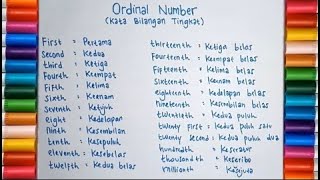 Ordinal Number
(Kata Bilangan Tingkat)
First = Pertama
Second = Kedua
third = Ketiga
Fourth = Keempat
Fifth = Kelima
Sixth = Keenam
Seventh = Ketujuh
Eight = Kedelapan
Ninth = Kesembilan
tenth = Kesepuluh
eleventh = Kesebelas
twelfth = Kedua belas
thirteenth = Ketiga belas
Fourteenth = Keempat belas
Fifteenth = Kelima belas
Sixteenth = Keenam belas
eighteenth = Kedelapan belas
Nineteenth = Kesembilan belas
twentieth = Kedua puluh
twenty first = Kedua puluh satu
twenty second = Kedua puluh dua
hundredth = Keseratus
thousandth = Keseribu
millionth = Kesejuta